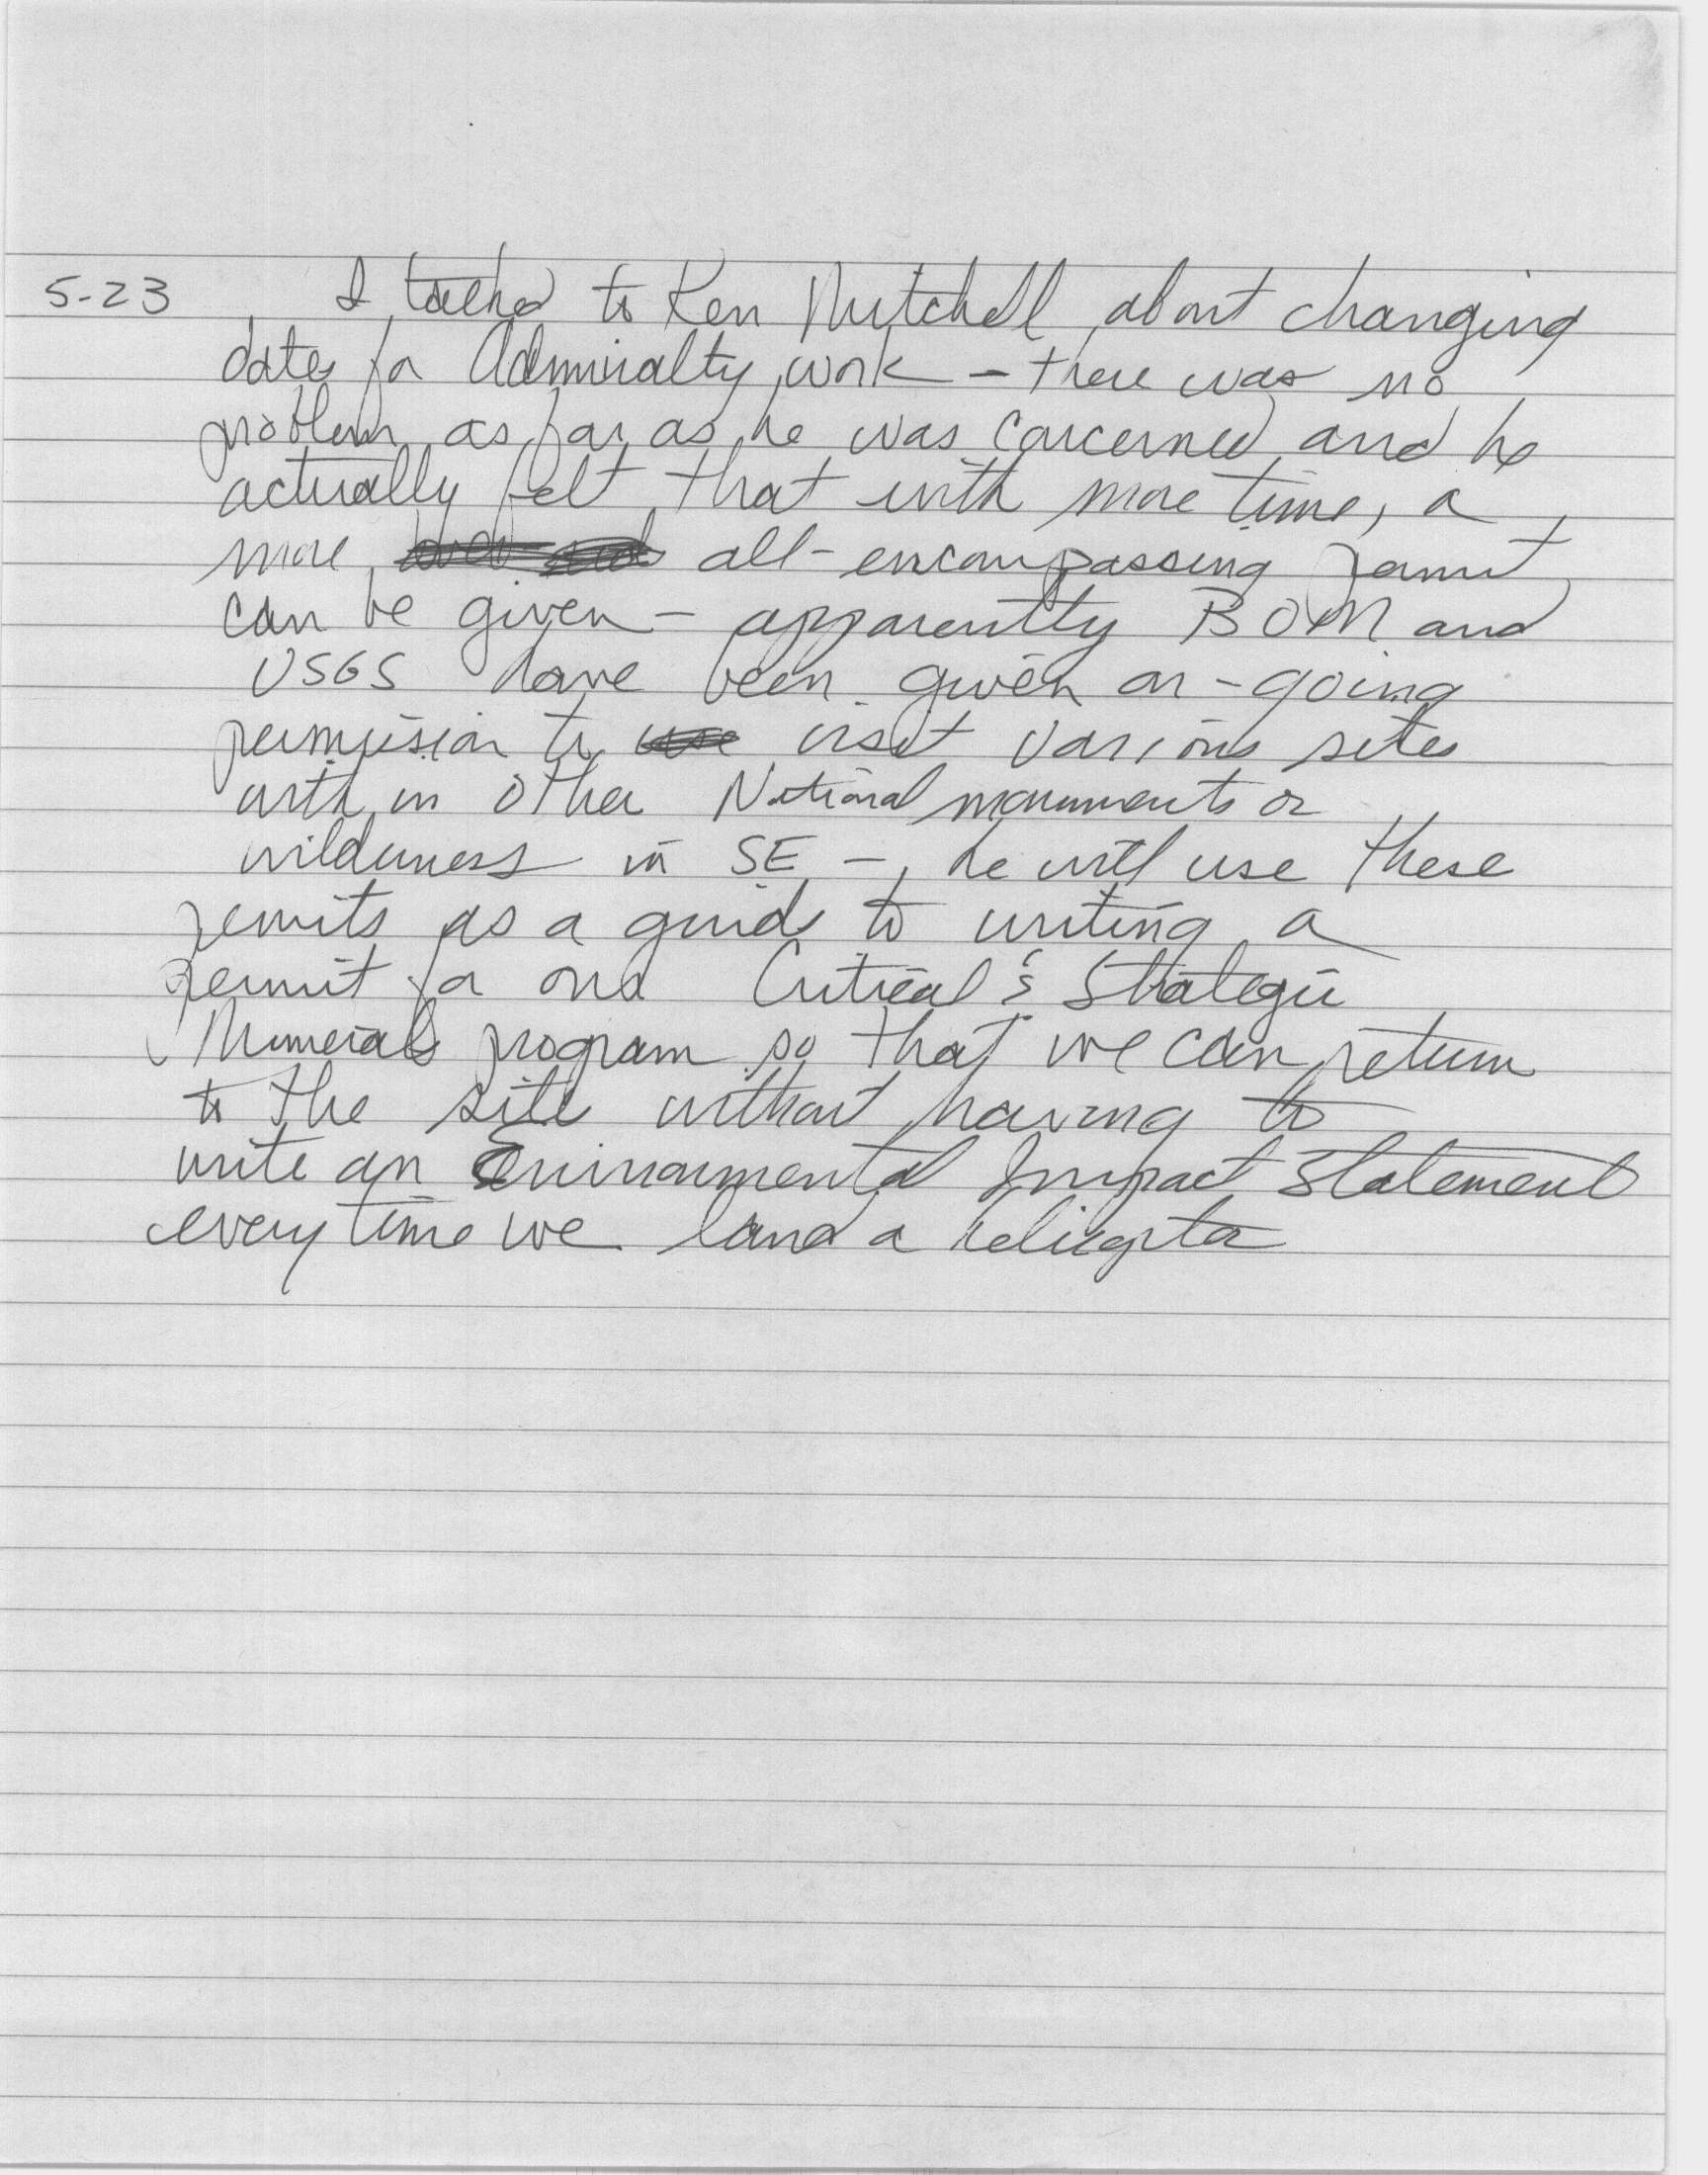 5-23 I talked to Ken Mitchell about changing
dates for Admiralty work - there was no
problem as far as he was concerned and he
actually felt that with more time, a
more all-encompassing permit
can be given - apparently BOM and
USGS have been given on-going
permission to visit various sites
with in other National monuments or
wilderness in SE -, he will use these
permits as a guide to writing a
permit for our Critical & Strategic
Minerals program so that we can return
to the site without having to
write an Environmental Impact Statement
every time we land a helicopter